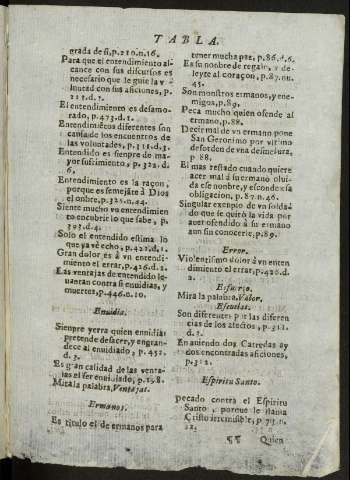 TABLA.
grada de si, p. 210. n. 16.
Para que el entendimiento al-
cance con sus discursos es
necesario que le guie la v
luntad con sus aficiones, p.
El entendimiento es desamo-
rado, p. 473. d. 1.
Entendimiẽtos diferentes son
causa de los encuentros de
las voluntades, p. 311. d. 3.
Entendido es sienpre de ma-
yor sufrimiento, p. 322. d.
6.
Entendimiento es la raçon,
porque es semejãte à Dios
el onbre, p. 325. n. 44.
Siente mucho vn entendimien
to encubrir lo que sabe, p.
393. d. 4.
Solo el entendido estima lo
que ya vè echo, p. 422. d. 1.
Gran dolor es à vn entendi-
miento el errar, p. 426. d. 2.
Las ventajas de entendido le-
uantan contra si enuidias, y
muertes, p. 446. n. 10.
Enuidia.
Sienpre yerra quien enuidia:
pretende desacer, y engran-
dece al enuidiado, p. 452.
d. 3.
Es gran calidad de las venta-
jas el ser enuidiado, p. 158.
Mira la palabra, Ventajas.
Ermanos.
Es titulo el de ermanos para
tener mucha paz, p. 86. d. 6.
Es su nonbre de regalo, y de-
leyte al coraçon, p. 87. nu.
45.
Son monstros ermanos, y ene-
migos, p. 89.
Peca mucho quien ofende al
ermano, p. 88.
Decir mal de vn ermano pone
San Geronimo por vltimo
desorden de vna desmesura,
p. 88.
El mas restado cuando quiere
acer mal à su ermano olui-
da ese nonbre, y esconde esa
obligacion, p. 87. n. 46.
Singular exenpio de vn solda-
do que se quitò la vida por
auer ofendido à su ermano
aun sin conocerle, p. 89.
Error.
Violentisimo dolor à vn enten
dimiento el errar, p. 426. d.
2.
Esfuerço.
Mira la palabra, Valor.
Escuelas.
Son diferentes por las diferen
cias de los afectos, p. 311.
d. 3.
En auiendo dos Catredas ay
dos encontradas aficiones,
p. 312.
Espiritu Santo.
pecado contra el Espiritu
Santo, porque le llama
Cristo irremisible, p.
¶¶ Quien